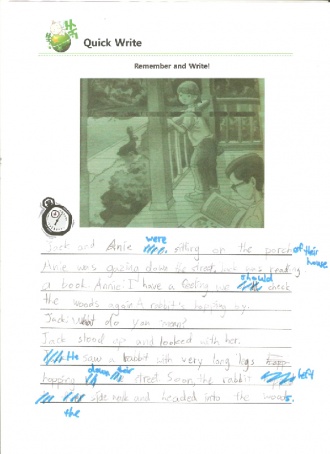 Quick Write
Remember and Write!
Jack and Annie were sitting on the porch of their house
Anie was gazing down the street. Jack was reading
a book. Annie: I have a feeling we should check
the woods again. A rabbit's hopping by.
Jack: What do you mean?
Jack stood up and looked with her.
He saw a rabbit with very long legs
hopping down their street Soon, the rabbit left
the side walk and headed into the woods.